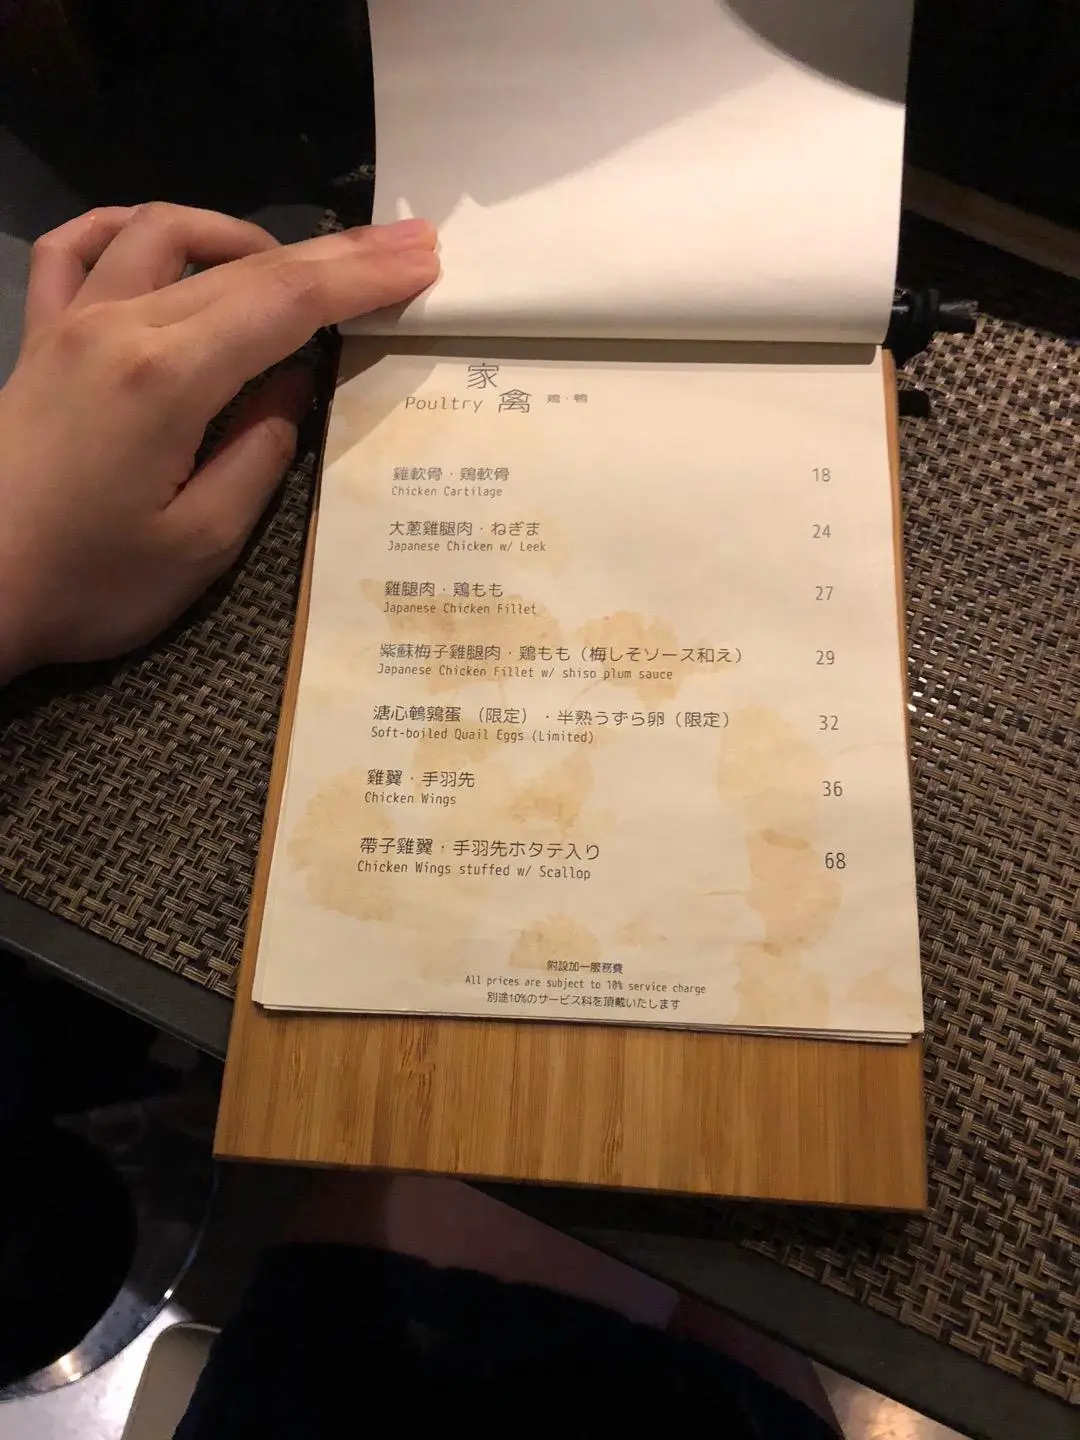 家禽
Poultry 鶏・鴨
雞軟骨・鶏軟骨 18
Chicken Cartilage
大蔥雞腿肉・ねぎま 24
Japanese Chicken w/ Leek
雞腿肉・鶏もも 27
Japanese Chicken Fillet
紫蘇梅子雞腿肉・鶏もも（梅しそソース和え） 29
Japanese Chicken Fillet w/ shiso plum sauce
溏心鵪鶉蛋（限定）・半熟うずら卵（限定） 32
Soft-boiled Quail Eggs (Limited)
雞翼・手羽先 36
Chicken Wings
帶子雞翼・手羽先ホタテ入り 68
Chicken Wings stuffed w/ Scallop
附設加一服務費
All prices are subject to 10% service charge
別途10%のサービス料を頂戴いたします